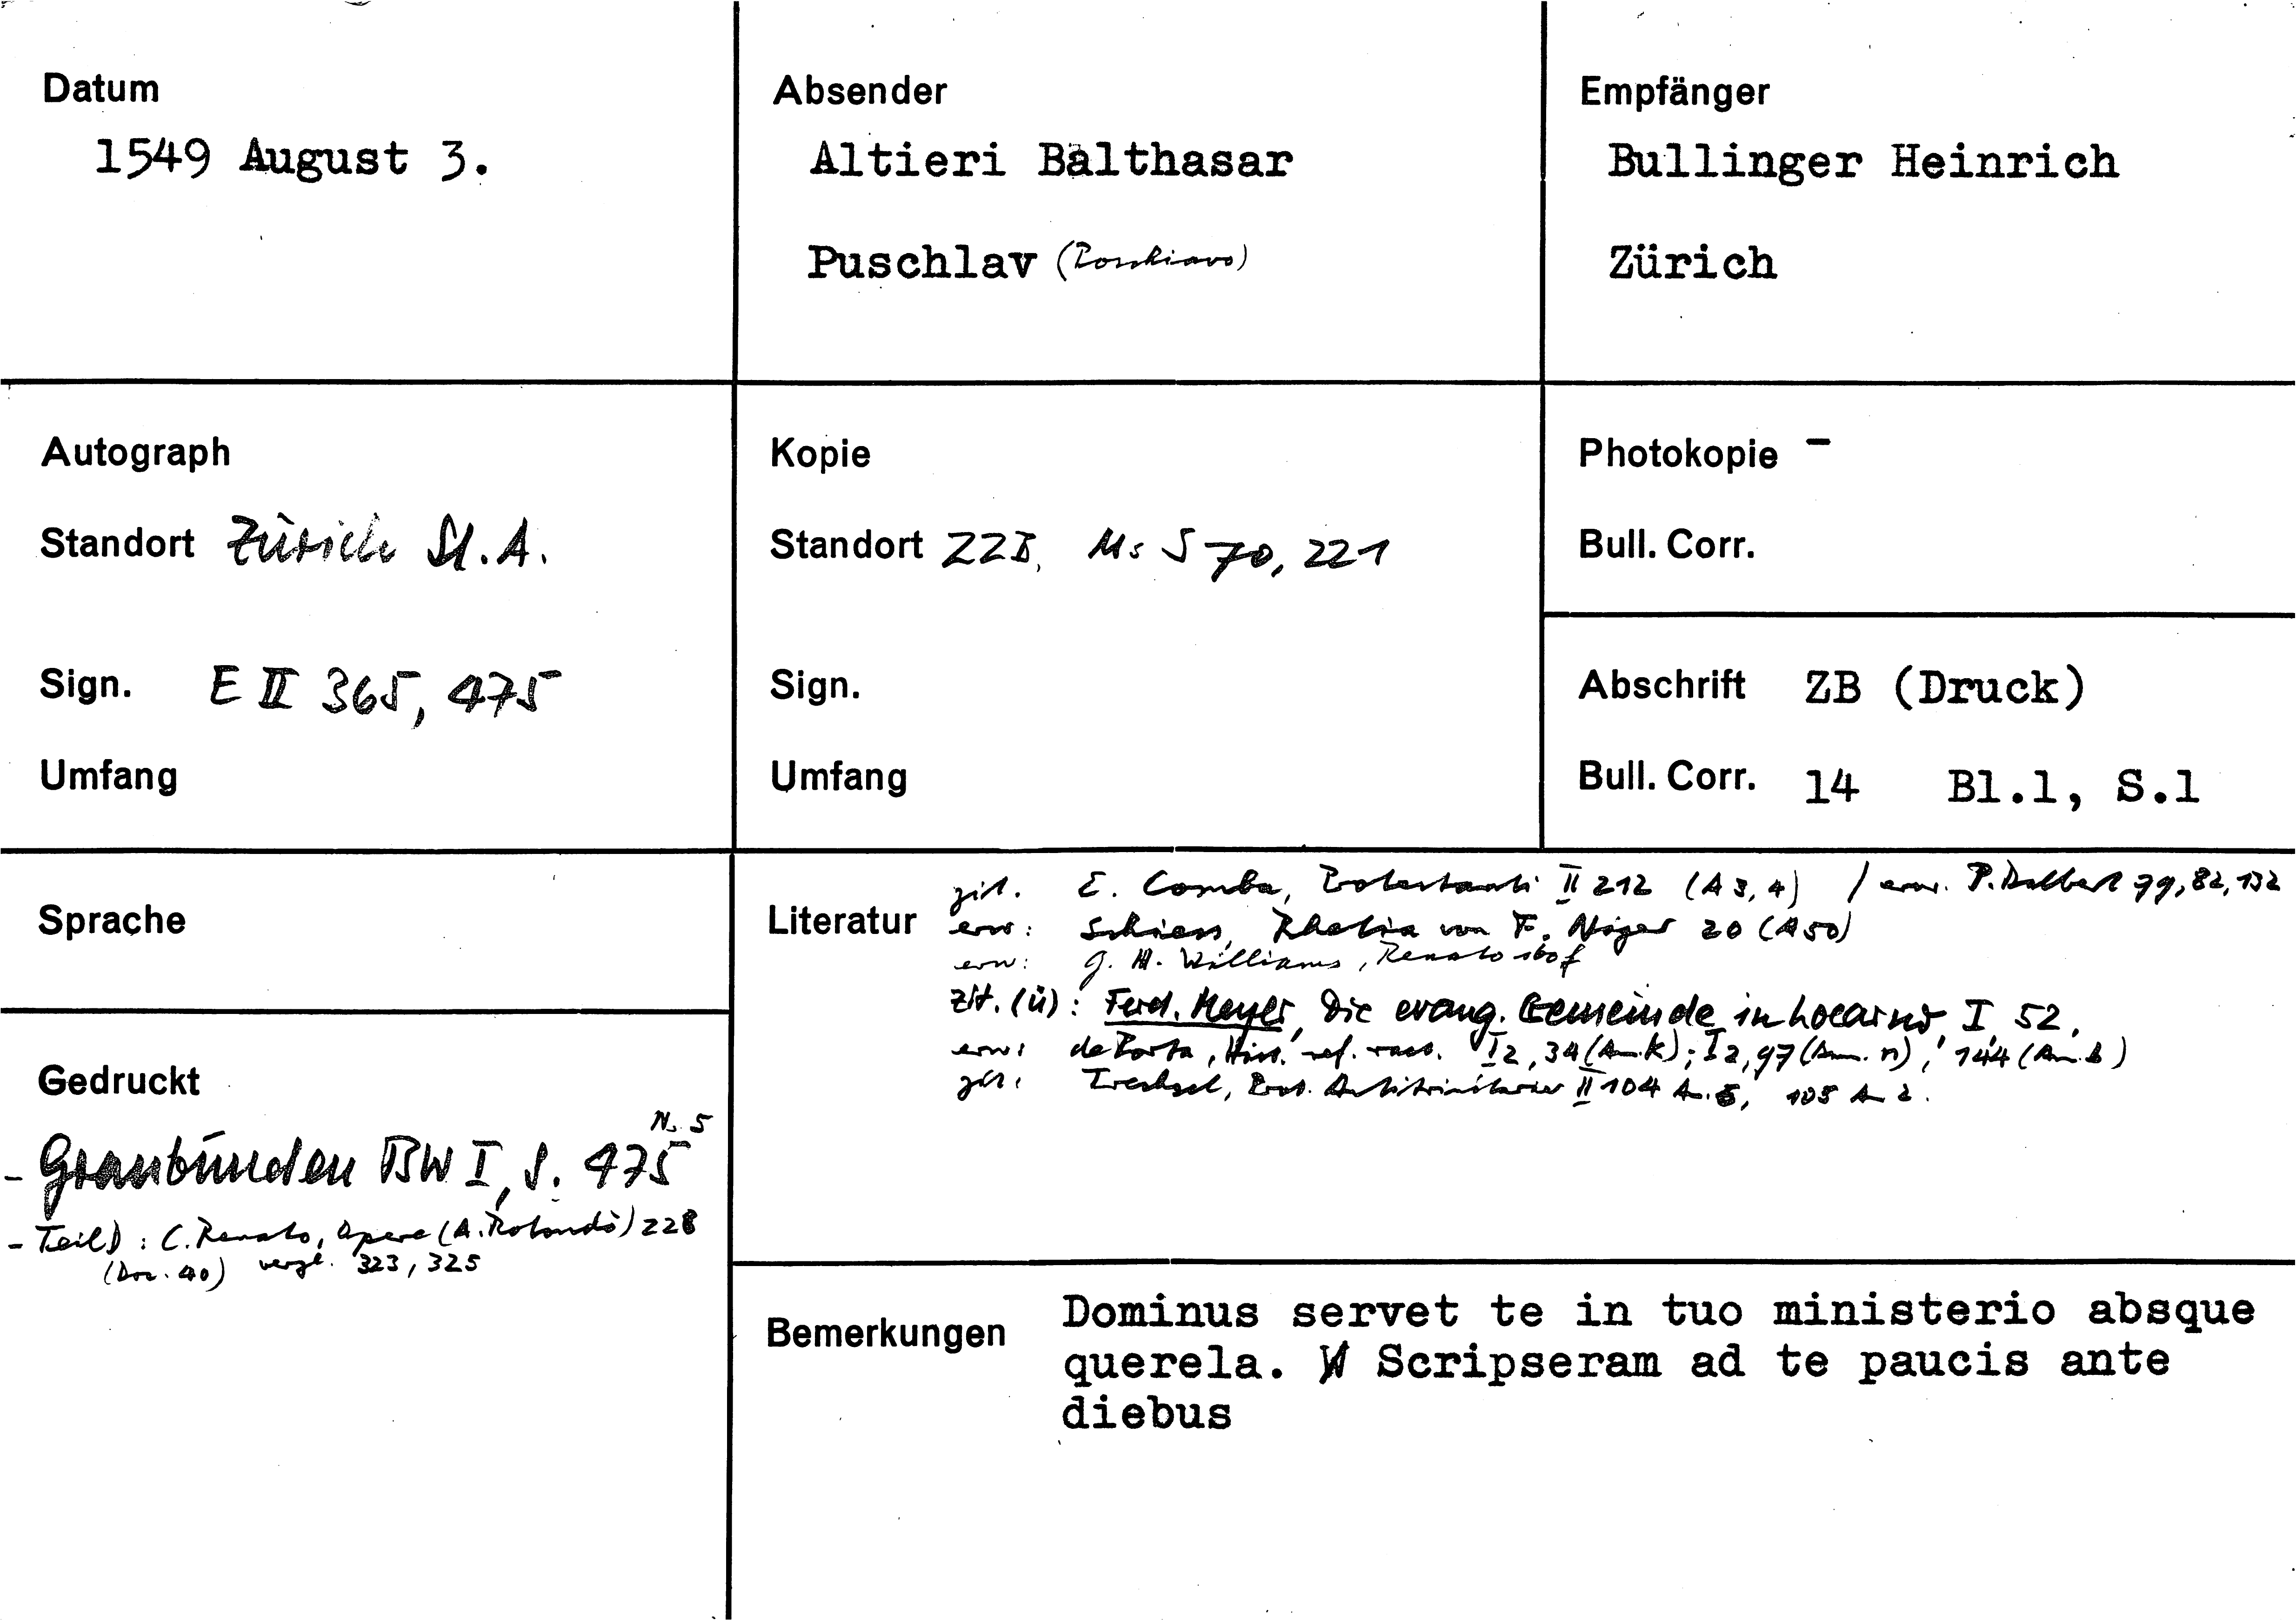 Datum
1549 August 3.
Absender
Altieri Balthasar
Puschlav (Poschiavo)
Empfänger
Bullinger Heinrich
Zürich
Autograph
Standort Zürich St.A.
Sign. E II 365, 475
Umfang
Kopie
Standort ZZB, Ms S 70, 221
Sign.
Umfang
Photokopie -
Bull. Corr.
Abschrift ZB (Druck)
Bull. Corr. 14 Bl.1, S.1
Sprache
Gedruckt
Nr. 5
- Graubünden BW I, S. 475
- Teil D: C. Renato, Opere (A. Rotondò) 228
(Doc. 40) vergl. 323, 325
Literatur
zit. E. Comba, Protestanti II 212 (A 3, 4) / erw. P. Dalbert 79, 82, 132
erw: Schiess, Rhetia von F. Niger 20 (A 50)
erw: G. H. Williams, Renato 160f
zit. (ü): Ferd. Meyer, Die evang. Gemeinde in Locarno, I, 52,
erw: de Porta, Hist. ref. I 2, 34 (Anm. k); I 2, 97 (Anm. n), 144 (Anm. b)
zit: Trechsel, Prot. Antitrinitarier II 104 A. 5, 105 A 2.
Bemerkungen
Dominus servet te in tuo ministerio absque
querela. Scripseram ad te paucis ante
diebus